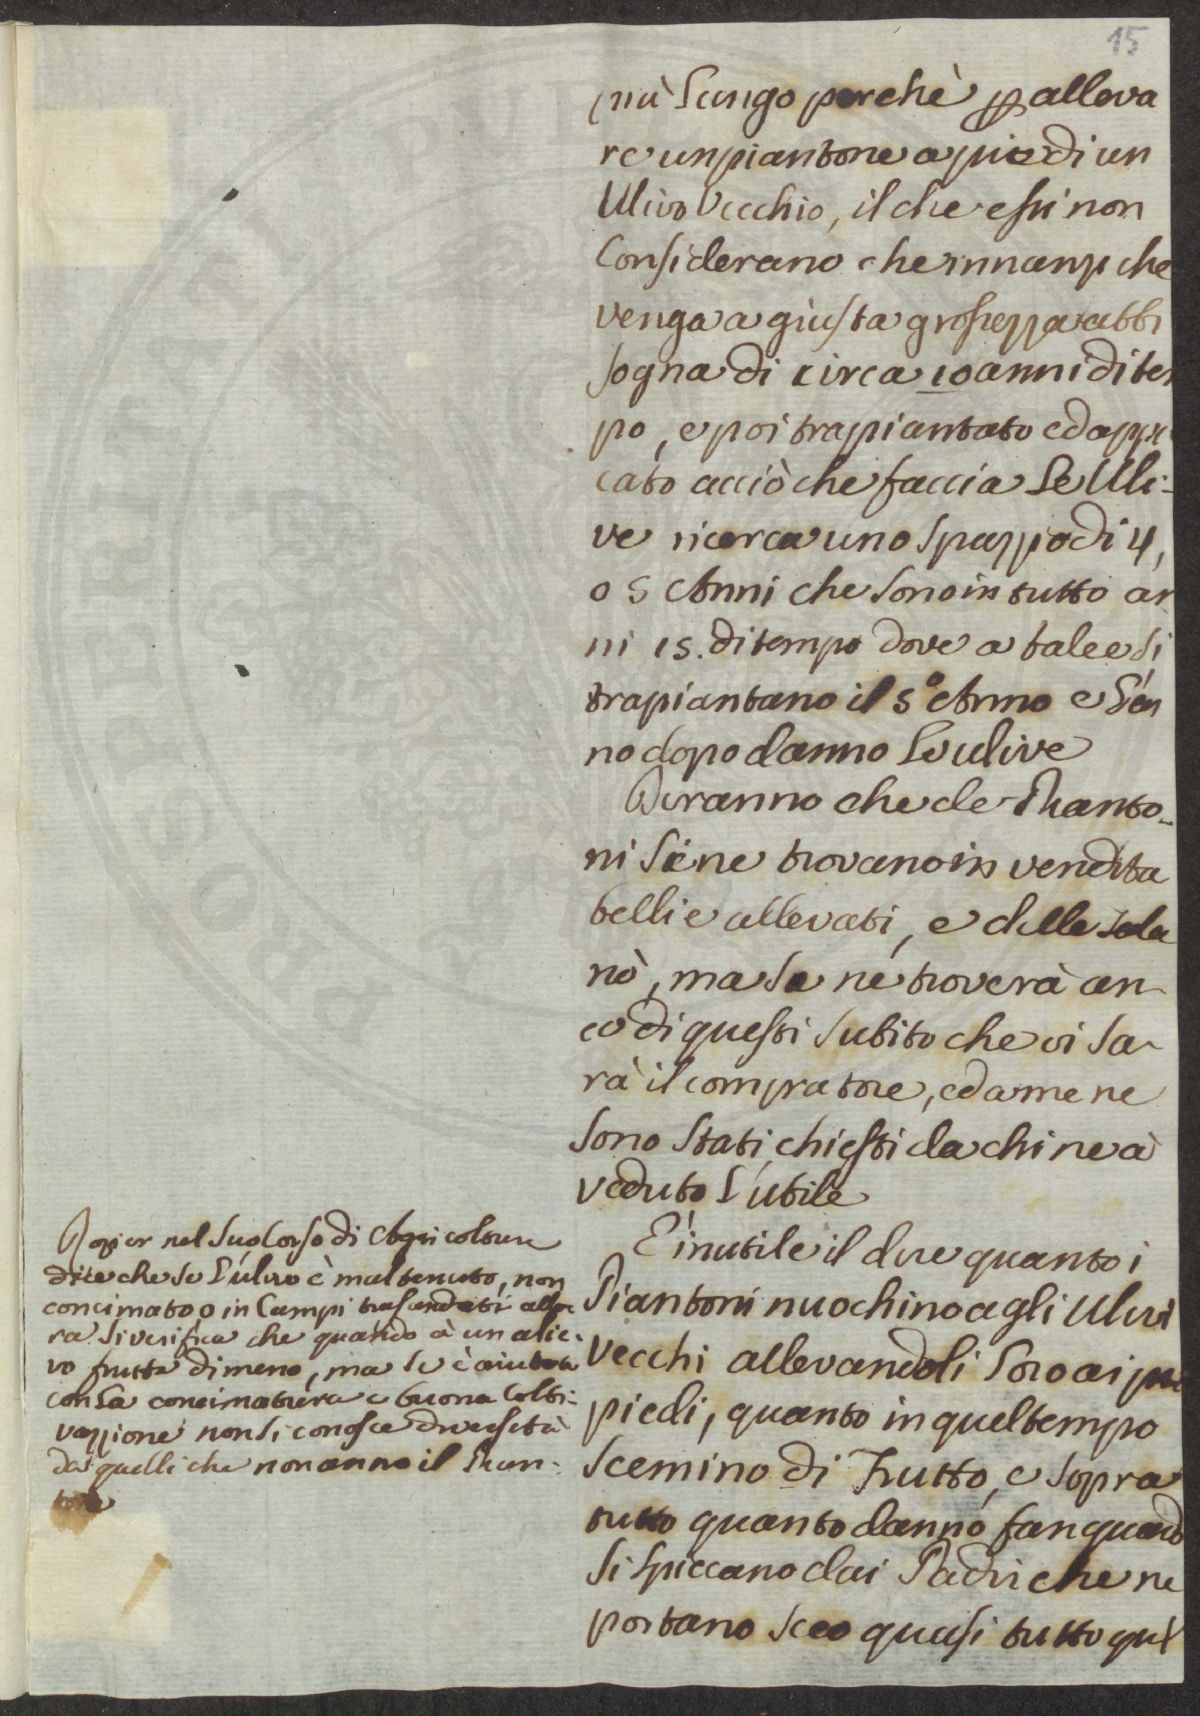 15
più lungo perchè p alleva
re un piantone a piè di un
Ulivo Vecchio, il che essi non
Considerano che innanzi che
venga a giusta grossezza abbi
sogna di circa 10 anni di tem
po, e poi trapiantato ed appi
cato acciò che faccia le Uli-
ve ricerca uno spazzio di 4,
o 5 Anni che sono in tutto an
ni 15. di tempo dove a talee si
trapiantano il 5° Anno e l'an
no dopo danno le ulive
Diranno che de Pianto-
ni se ne trovano in vendita
belli e allevati, e delle talee
nò, ma se ne troverà an-
co di questi subito che vi sa-
rà il compratore, ed a me ne
sono stati chiesti da chi ne à
veduto l'utile
E' inutile il dire quanto i
Piantoni nuochino agli Ulivi
Vecchi allevandoli loro ai
piedi, quanto in quel tempo
scemino di Frutto, e sopra
tutto quanto danno fan quando
si spiccano dai Padri che ne
portano seco quasi tutto quel
Rozier nel suo Corso di Agricoltura
dice che se l'ulivo è mal tenuto, non
concimato o in Campi trasandati allo
ra si verifica che quando à un allie-
vo frutta di meno, ma se è aiutato
con la concimatura e buona Colti-
vazzione non si conosce diversità
da quelli che non anno il Pian-
tone